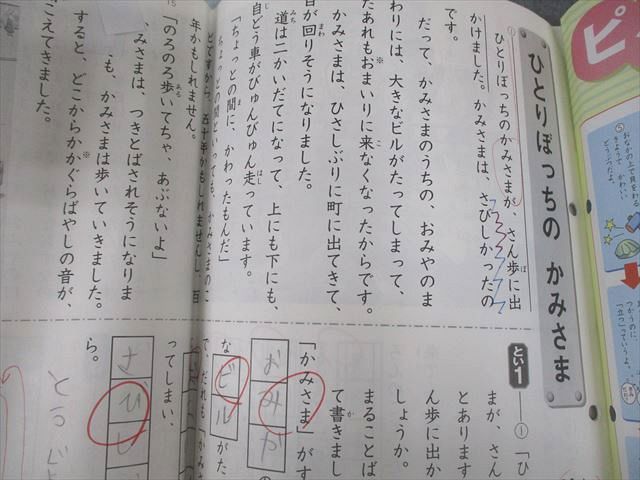 ひとりぼっちの かみさま
①ひとりぼっちのかみさまが、さん歩に出
かけました。かみさまは、さびしかったの
です。
だって、かみさまのうちの、おみやのま
わりには、大きなビルがたってしまって、
だあれもおまいりに来なくなったからです。
かみさまは、ひさしぶりに町に出てきて、
目が回りそうになりました。
道は二かいだてになって、上にも下にも、
自どう車がびゅんびゅん走っています。
「ちょっとの間に、かわったもんだ」
ちょっとの間といっても、かみさまのこ
とですから、五十年かもしれませんし、百
年かもしれません。
「のろのろ歩いてちゃ、あぶないよ」
みさまは、つきとばされそうになりま
も、かみさまは歩いていきました。
すると、どこからかかぐらばやしの音が、
こえてきました。
15
とい1
① 「ひ
まが、さん
とあります
ん歩に出か
しょうか。
まることば
て書きまし
「かみさま」がす
おみや
の
な
ビル
がた
で、だれも、かみさ
ってしまい、
さびし
ら。
ピ
⑤
おなかの上で貝をわる
きようで かわいい
どうぶつだよ。
つかうのに、
「立つ」っていうよ。